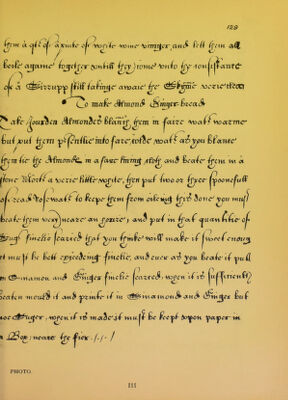 129
them a qts of a pinte of white wine viniger, and lett them all
boile againe together vntill they come vnto the consistance
of a Sirrupp still takinge awaie the skume verie cleane
To make Almond Ginger-bread
Take Jourden Almondes blanch them in faire wate warme
but put them presentlie into faire colde wate as you blanch
them lie the Almondes in a faire cloth and beate them in a
stone Morter a verie little while, then put two or three spoonefull
of read Rose wate to keepe them from oileing this done you must
beate them very neare an houre, and put in that quantitie of
Sugr finelie searced that you thinke will make it sweet enoug
it must be bett exceeding finelie, and euer as you beate it put
in Cinamon and Ginger finelie searced when it is sufficiently
beaten mould it and printe it in Cinamond and Ginger but
noe Suger, when it is made it must be kept vpon paper in
a Box neare the fier
PHOTO.
III